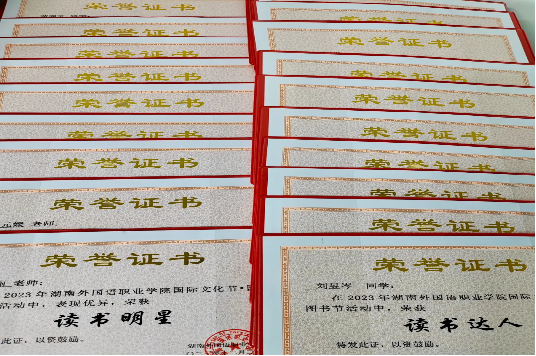 荣誉证书
荣誉证书
荣誉证书
荣誉证书
荣誉证书
荣誉证书
荣誉证书
荣誉证书
老师
荣誉证书
老师：
2023年湖南外国语职业学院国际文化节·
活动中，表现优异，荣获
读书明星
此证，以资鼓励。
荣誉证书
荣誉证书
荣誉证书
荣誉证书
荣誉证书
荣誉证书
荣誉证书
荣誉证书
荣誉证书
刘昱岑 同学：
在2023年湖南外国语职业学院国际
图书节活动中，荣获
读书达人
特发此证，以资鼓励。